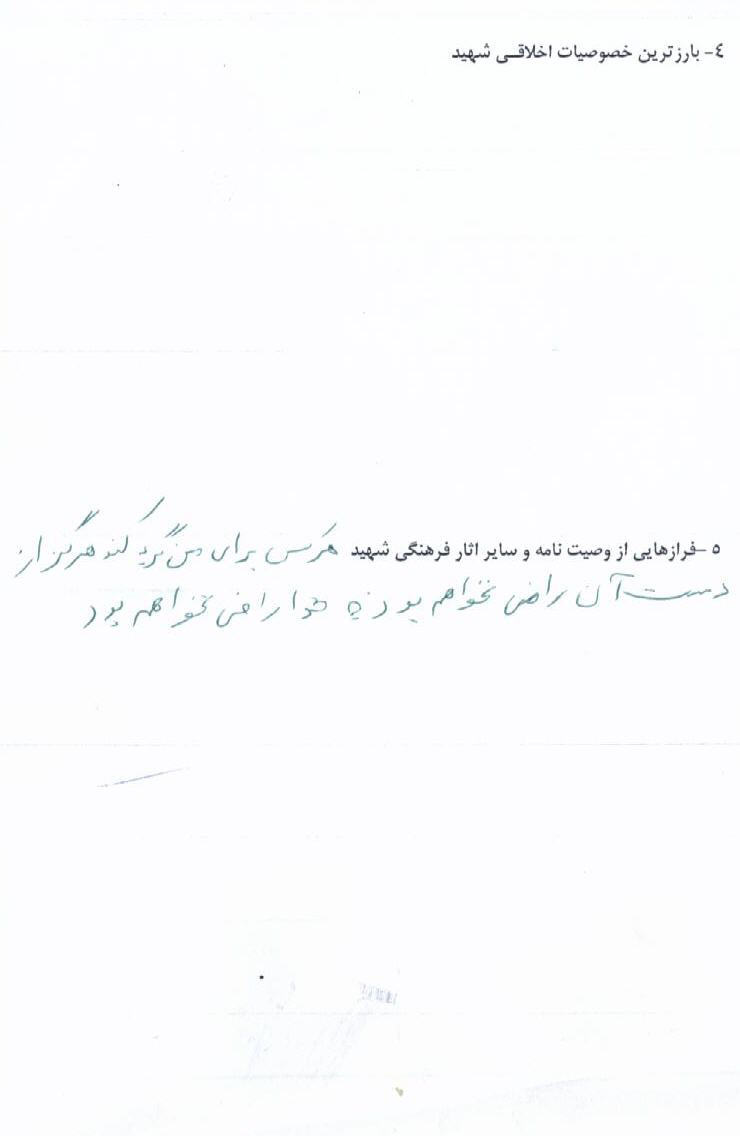 ٤- بارزترین خصوصیات اخلاقی شهید
٥ –فرازهایی از وصیت نامه و سایر آثار فرهنگی شهید هرکس برای من گریه کند هرگز از
دست آن راضی نخواهم بود نه خدا راضی نخواهد بود